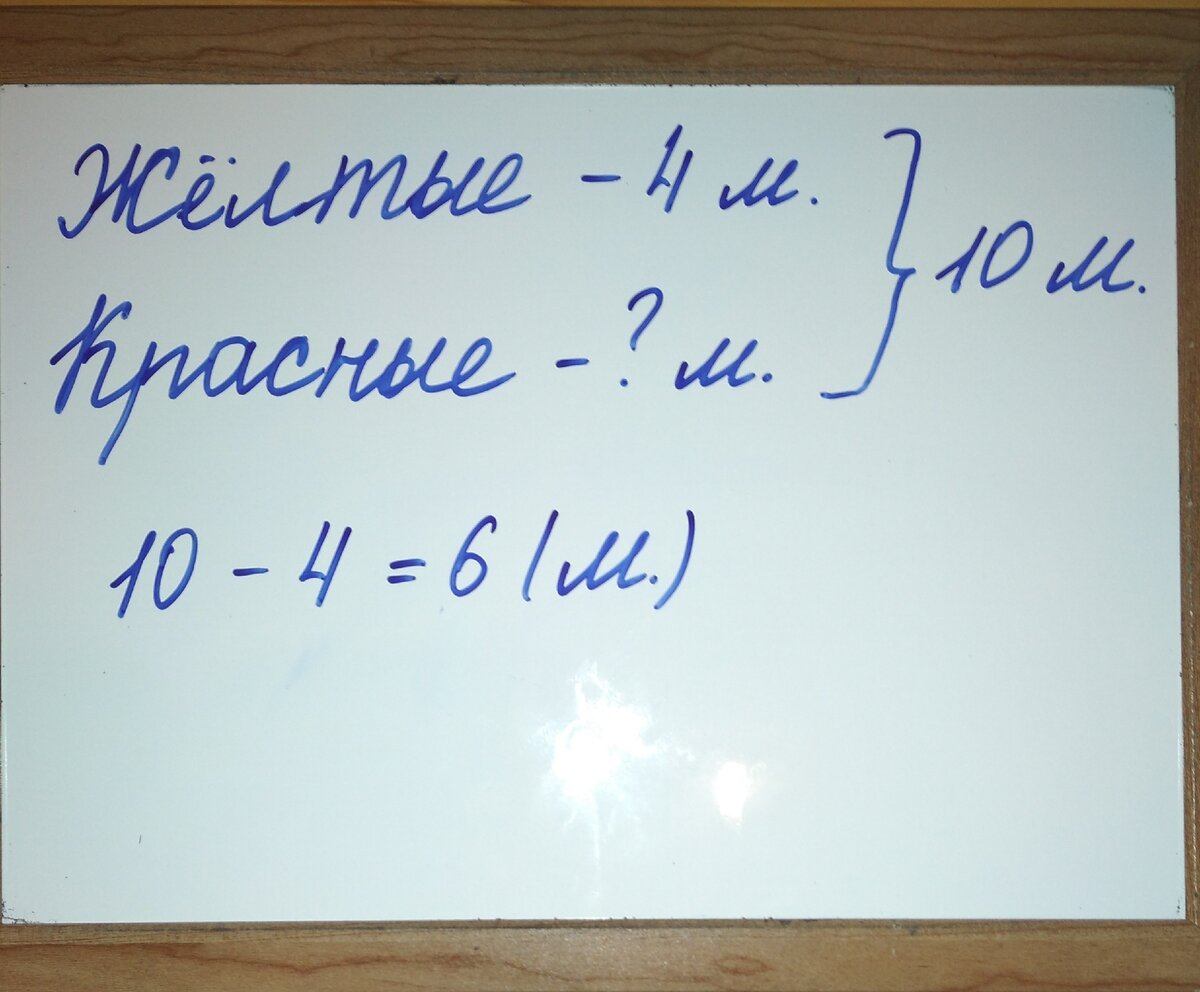 Жёлтые - 4 м.
Красные - ? м.
} 10 м.
10 - 4 = 6 (м.)